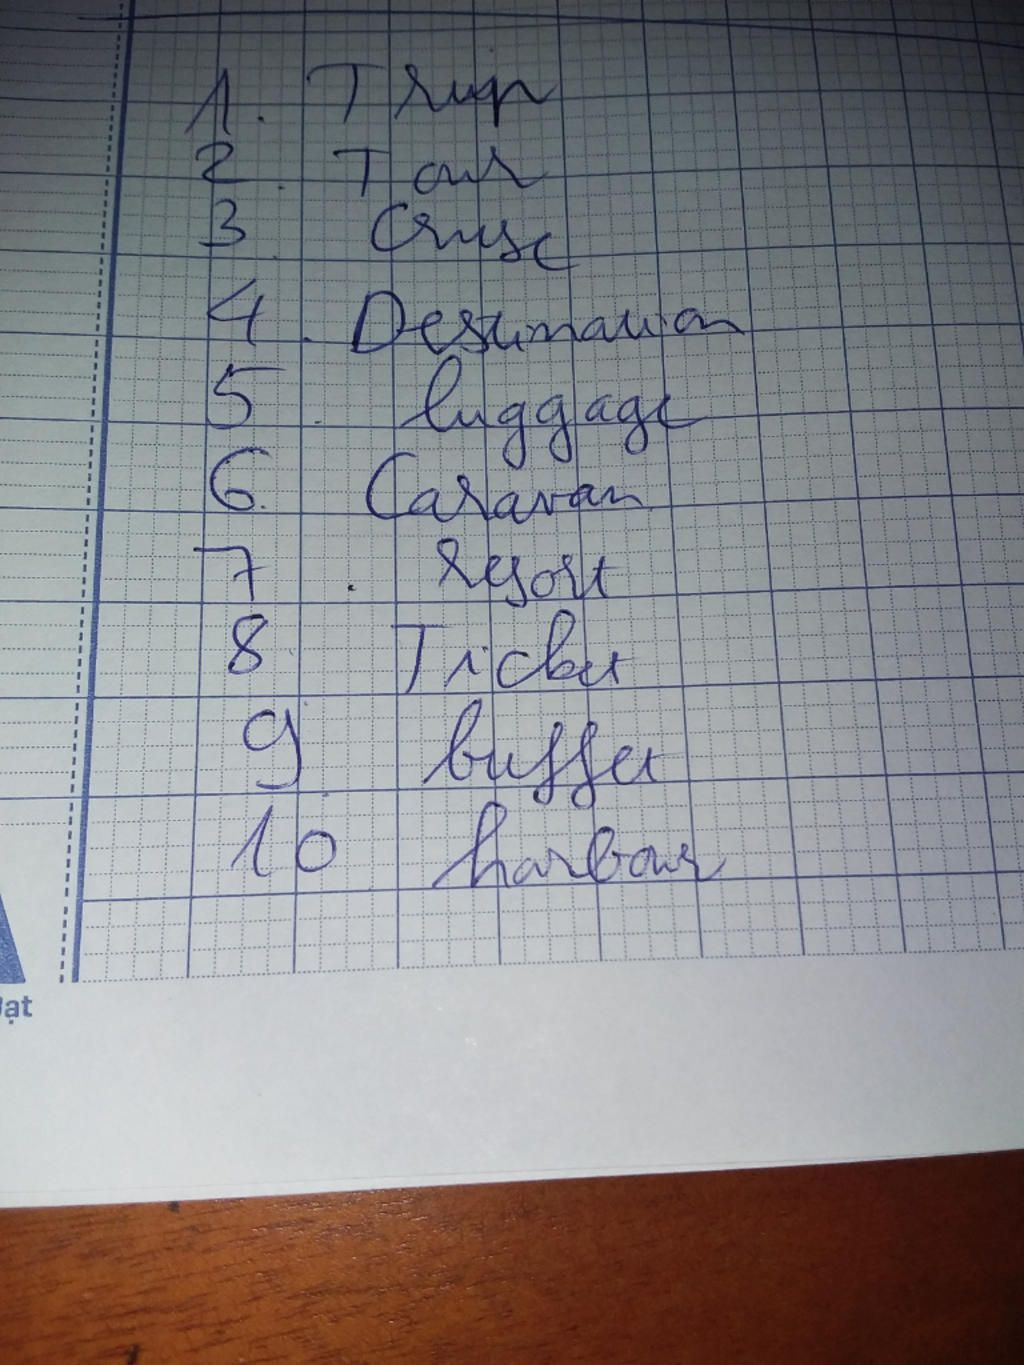 1. Trip
2. Tour
3 Cruise
4. Destination
5. luggage
6. Caravan
7. resort
8. Ticket
9. buffet
10 harbour